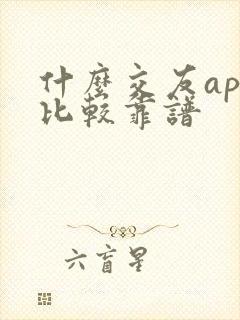 什麼交友ap
比較靠譜
六盲星